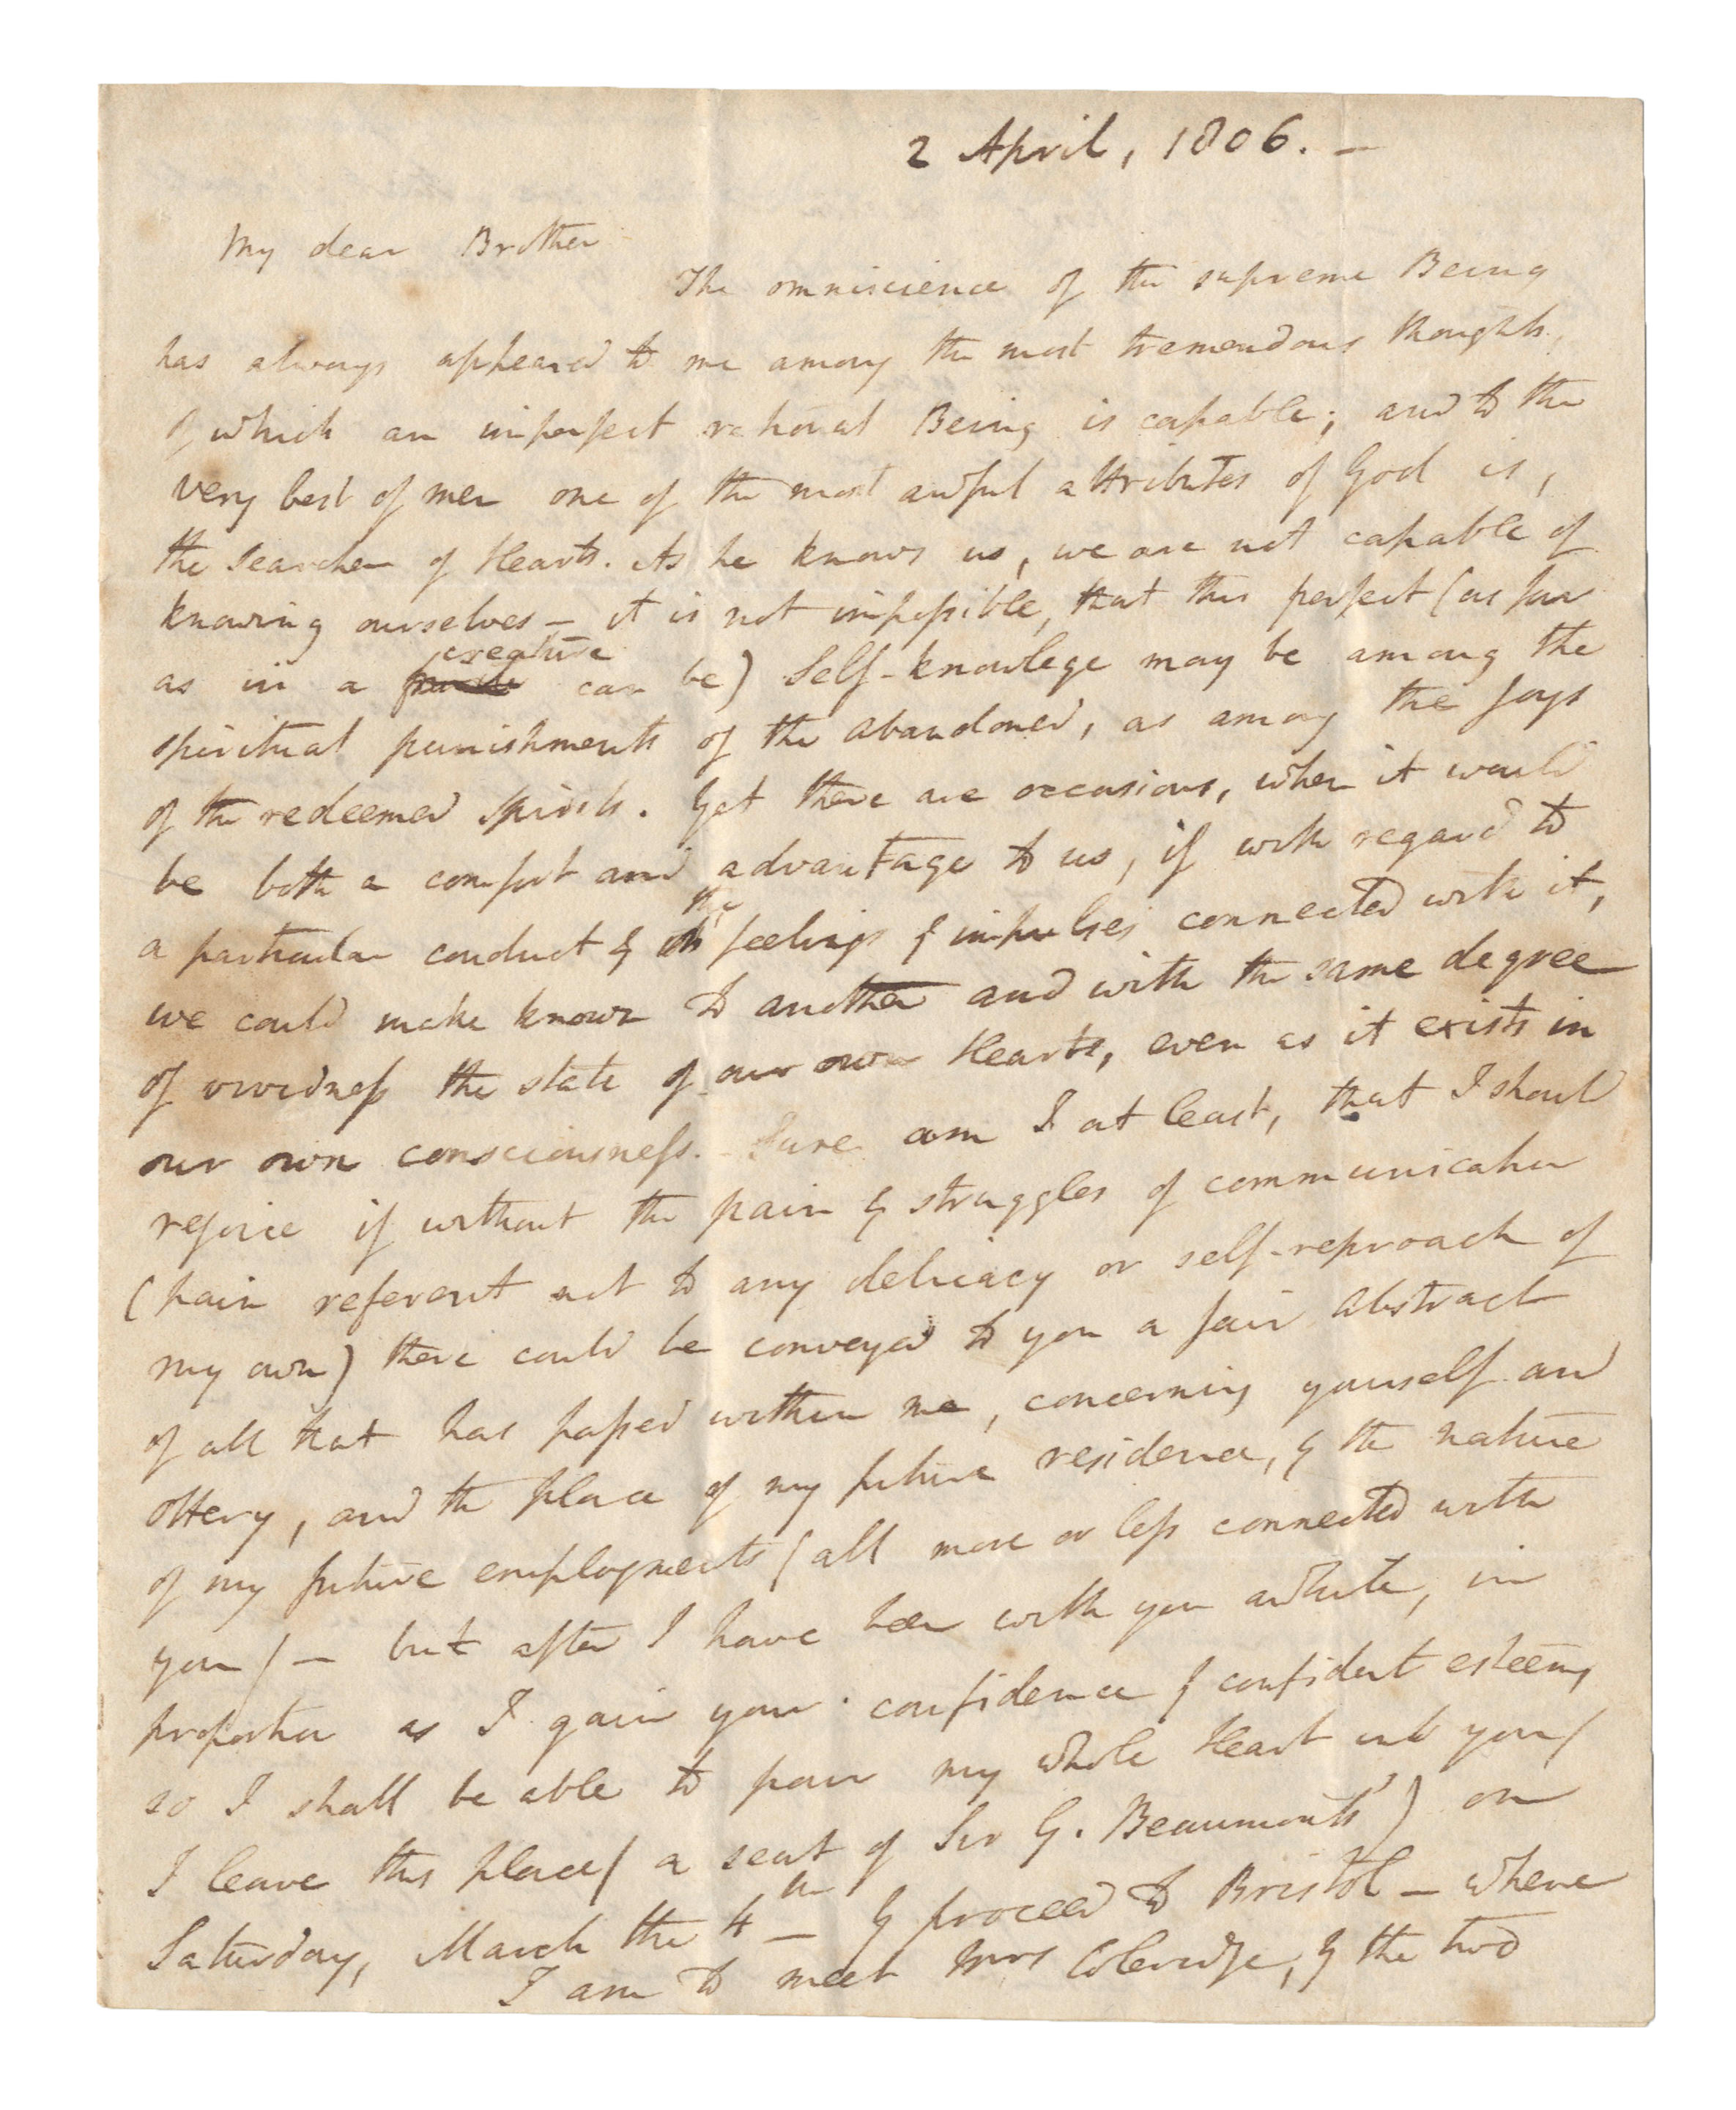 2 April, 1806. —
My dear Brother
The omniscience of the supreme Being
has always appeared to me among the most tremendous thoughts,
of which an imperfect rational Being is capable; and to the
very best of men one of the most awful attributes of God is,
the Searcher of Hearts. As he knows us, we are not capable of
knowing ourselves — it is not impossible, that this perfect (as far
creature
as in a can be) Self-knowlege may be among the
spiritual punishments of the abandoned, as among the Joys
of the redeemed Spirits. Yet there are occasions, when it would
be both a comfort and advantage to us, if with regard to
the
a particular conduct & feelings & impulses connected with it,
we could make known to another and with the same degree
of vividness the state of our own Hearts, even as it exists in
our own consciousness. Sure am I at least, that I should
rejoice if without the pain & struggles of communication
(pain referent not to any delicacy or self-reproach of
my own) there could be conveyed to you a fair Abstract
of all that has passed within me, concerning yourself and
Ottery, and the place of my future residence, & the nature
of my future employments (all more or less connected with
you / — but after I have been with you awhile, in
proportion as I gain your confidence & confident esteem,
so I shall be able to pour my whole Heart into you /
I leave this place (a seat of Sir G. Beaumont's) on
Saturday, March the 4th — & proceed to Bristol — where
I am to meet Mrs Coleridge, & the two